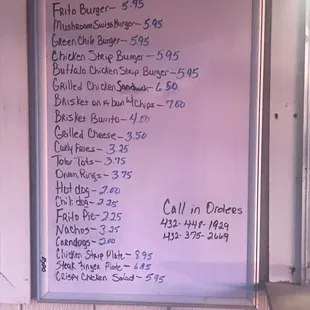 Frito Burger - 5.95
Mushroom Swiss Burger - 5.95
Green Chile Burger - 5.95
Chicken Strip Burger - 5.95
Buffalo Chicken Strip Burger - 5.95
Grilled Chicken Sandwich - 6.50
Brisket on a bun w/ Chips - 7.00
Brisket Burrito - 4.50
Grilled Cheese - 3.50
Curly Fries - 3.25
Tator Tots - 3.75
Onion Rings - 3.75
Hot dog - 2.00
Chili dog - 2.25
Frito Pie - 2.25
Nachos - 3.25
Corndogs - 2.00
Chicken Strip Plate - 8.95
Steak Finger Plate - 6.85
Crispy Chicken Salad - 5.95
Call in Orders
432-448-1929
432-375-2669